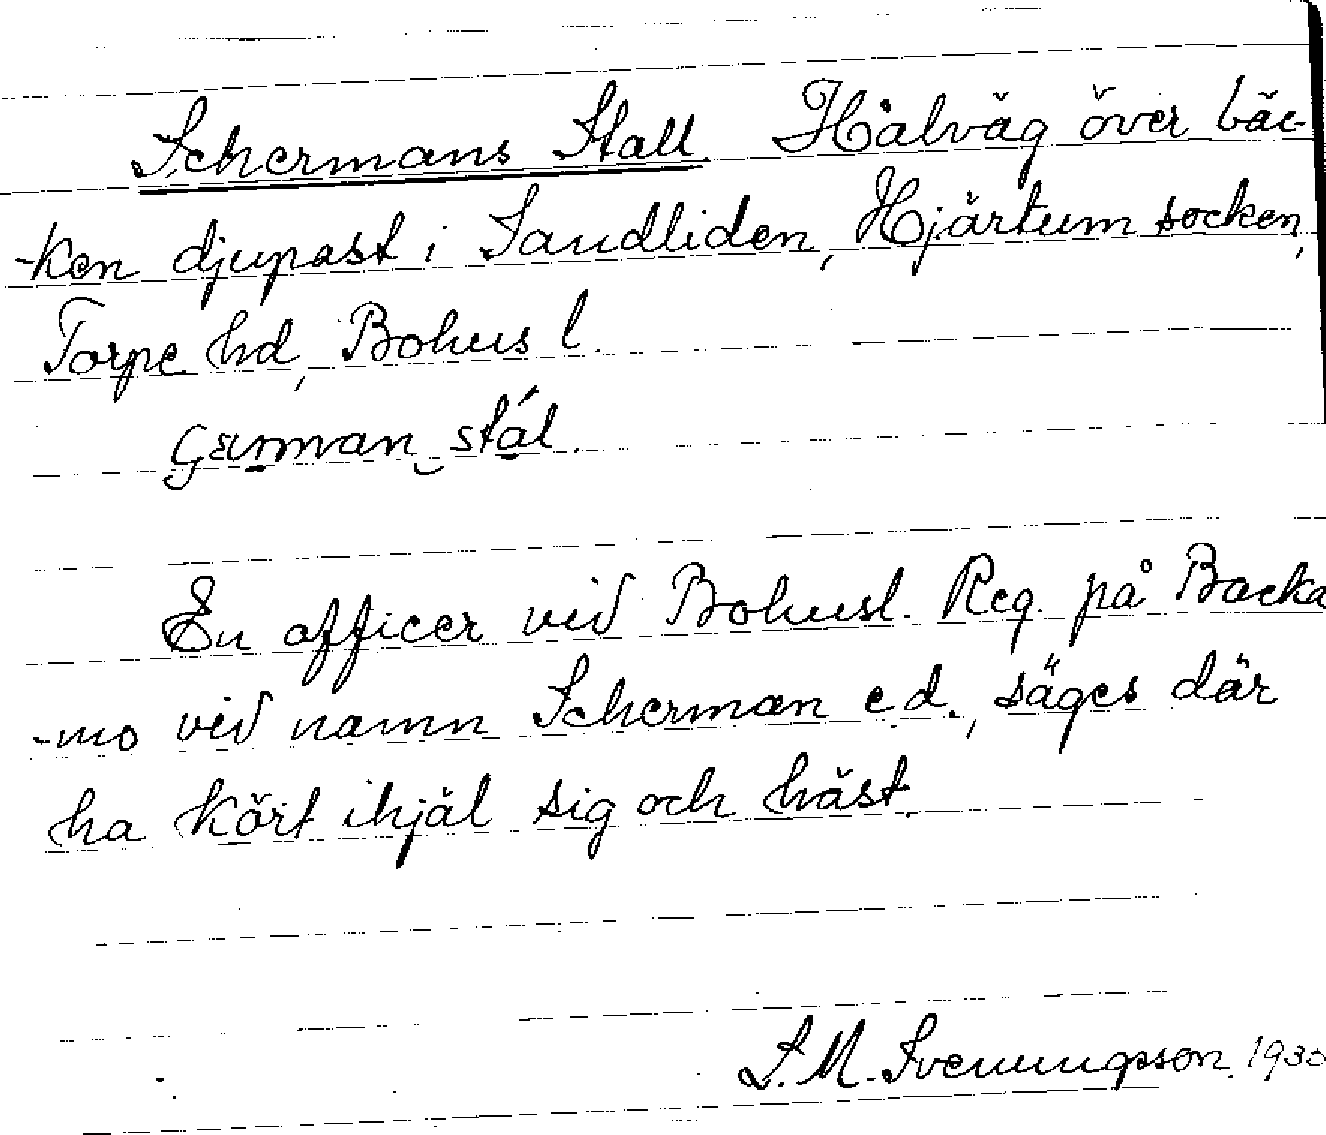 Schermans Stall. Hålväg över bäc-
-ken djupast i Sandliden, Hjärtum socken,
Torpe hd, Bohus l.
stál.
En officer vid Bohusl. Reg. på Backa
-mo vid namn Scherman e.d., säges där
ha kört ihjäl sig och häst.
S. M. Svenungsson. 1930